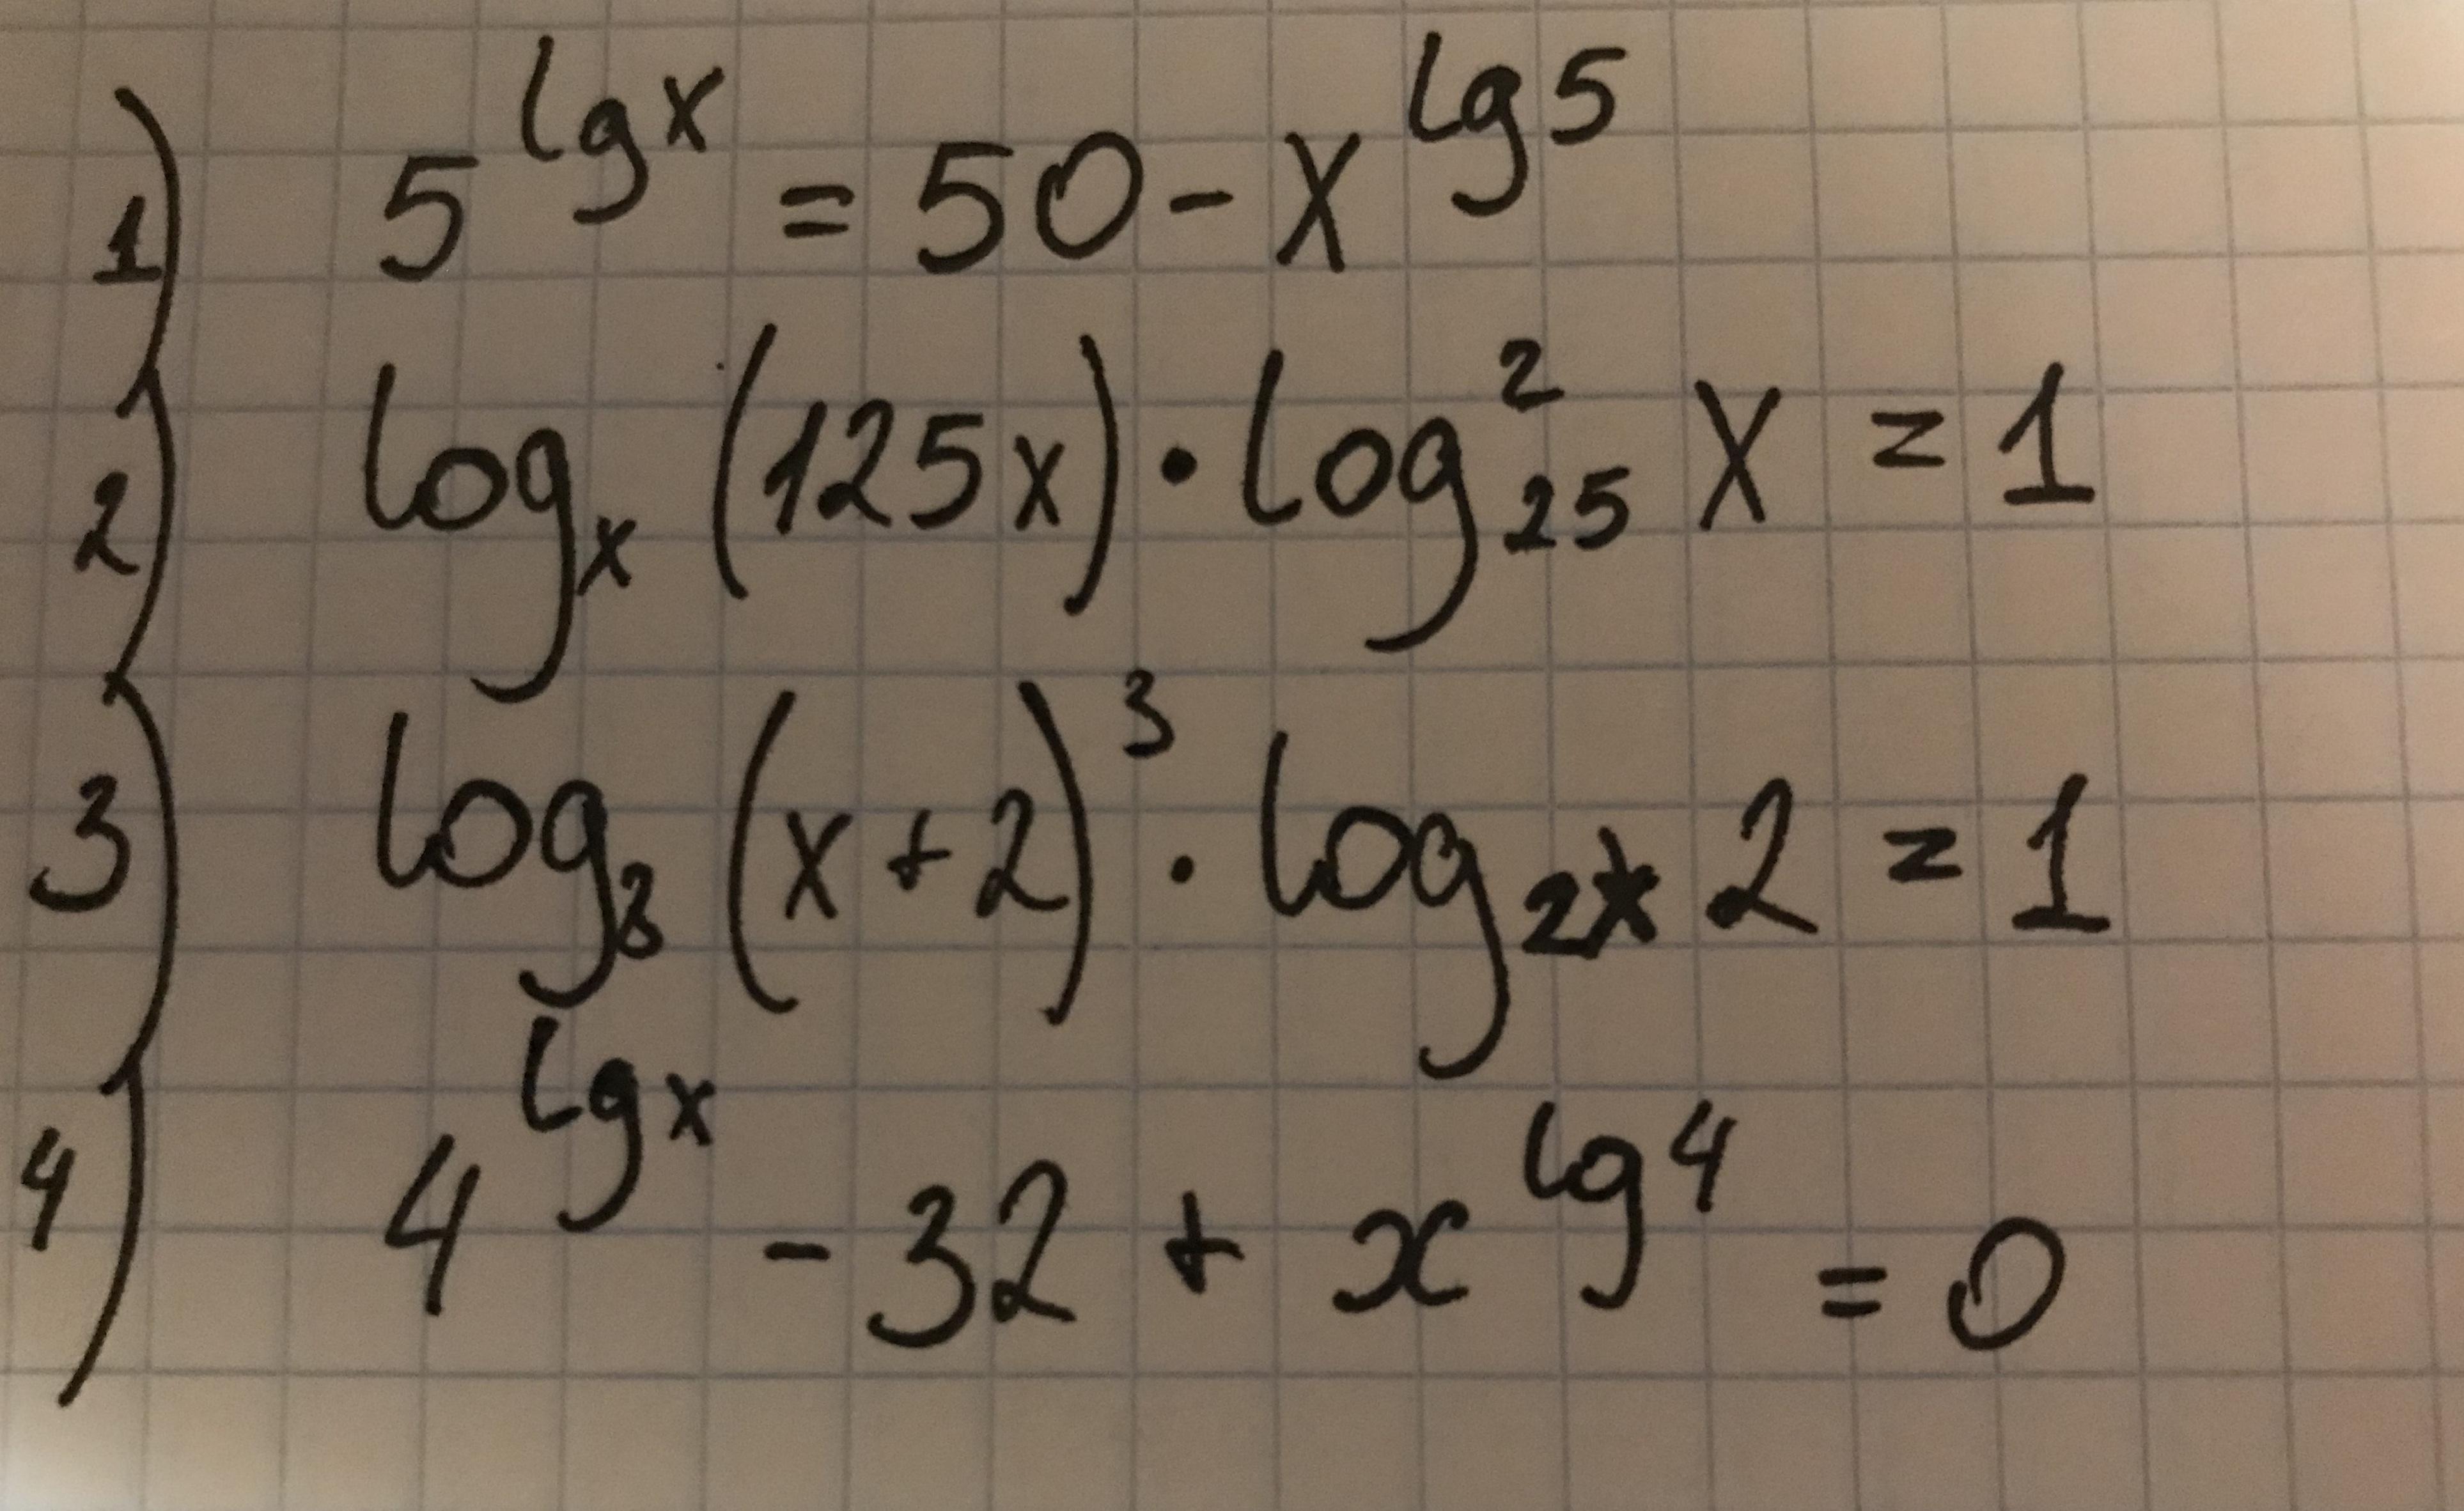 1) 5^lgx = 50 - x^lg5
2) log_x (125x) · log²_25 x = 1
3) log_8 (x+2)³ · log_2x 2 = 1
4) 4^lgx - 32 + x^lg4 = 0